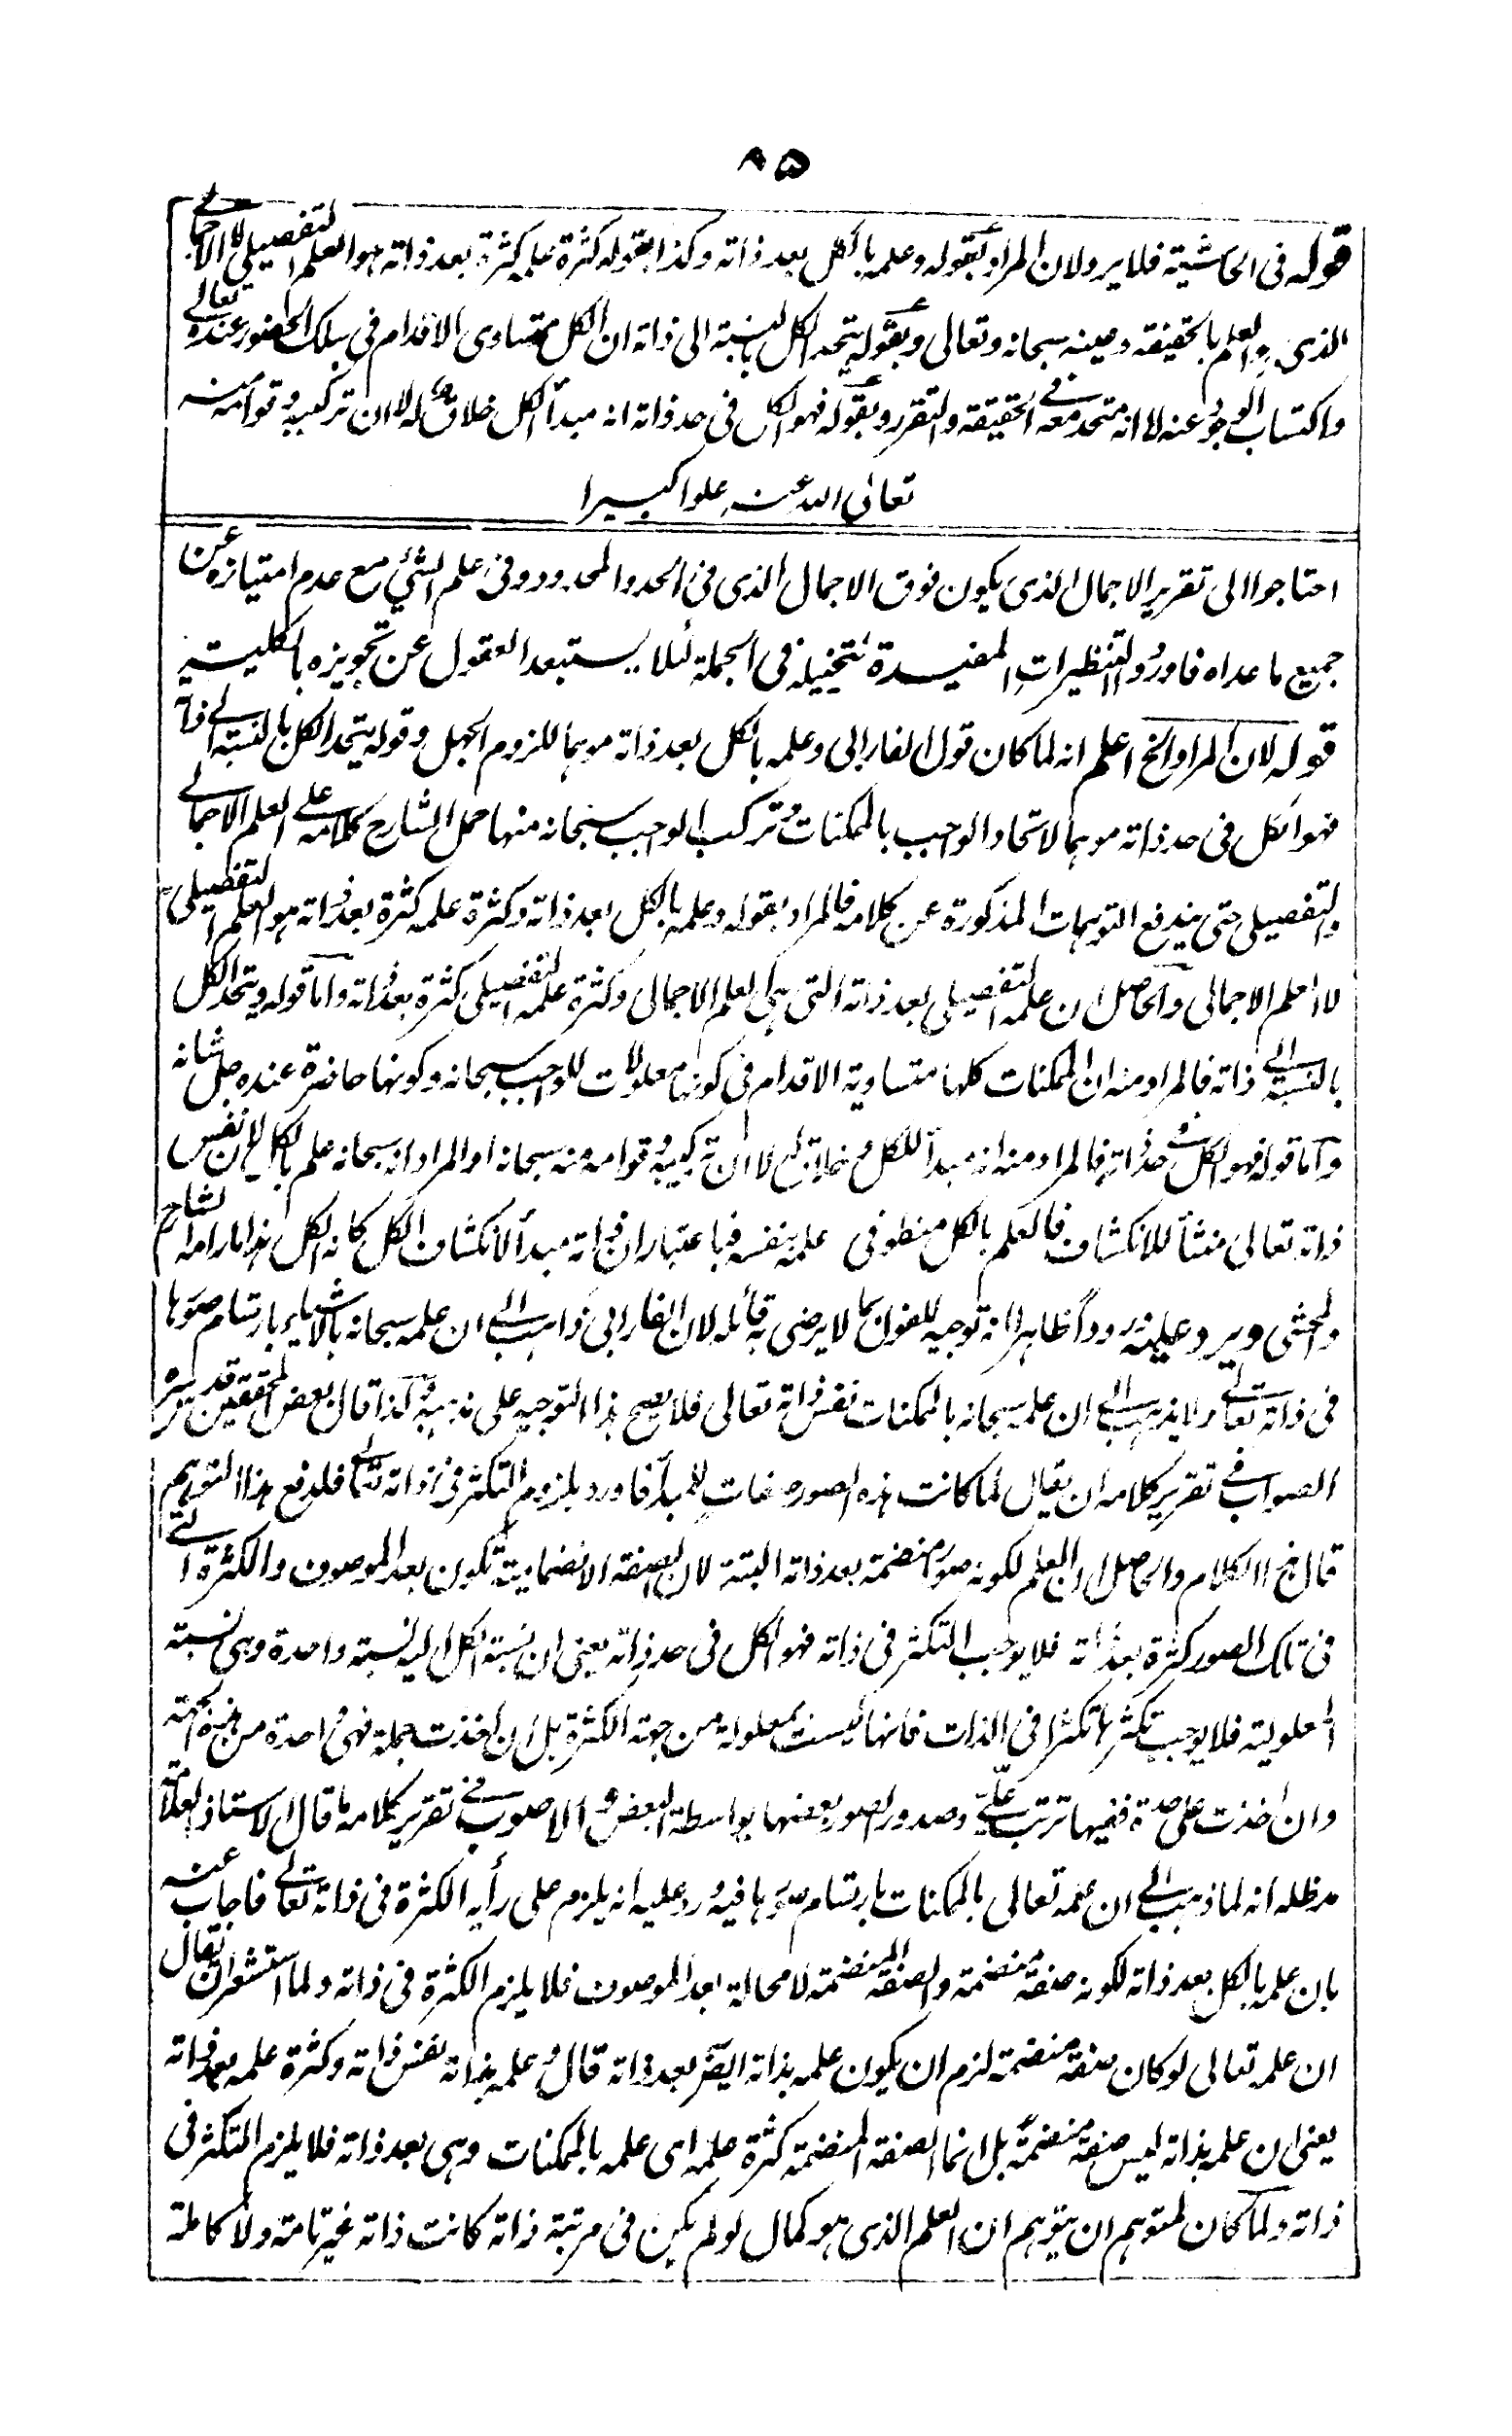 ٨٥
قوله فى الحاشية فلا يرد لان المراد بقوله وعلمه بالكل بعد ذاته وكذا بقوله كثرة علمه كثرة بعد ذاته هو العلم التفصيلى لا الاجمالى
الذى هو العلم بالحقيقة وعينه سبحانه وتعالى وبقوله يتحد الكل بالنسبة الى ذاته ان الكل متساوى الاقدام فى سلك الحضور عنده تعالى
واكتساب الوجود عنه لا انه متحد معه فى الحقيقة والتقرر وبقوله فهو الكل فى حد ذاته انه مبدأ الكل خلاق له لا ان تركيبه وقوامه منه
تعالى الله عنه علوا كبيرا
احتاجوا الى تقرير الاجمال الذى يكون فوق الاجمال الذى فى الحد والمحدود وفى علم الشئ مع عدم امتيازه عن
جميع ما عداه فاوردوا التنظيرات المفيدة لتخييله فى الجملة لئلا يستبعد العقول عن تجويزه بالكلية
قوله لان المراد الخ اعلم انه لما كان قول الفارابى وعلمه بالكل بعد ذاته موهما للزوم الجهل وقوله يتحد الكل بالنسبة الى ذاته
فهو الكل فى حد ذاته موهما لاتحاد الواجب بالممكنات وتركب الواجب سبحانه منها حمل الشارح كلامه على العلم الاجمالى
والتفصيلى حتى يندفع التوهمات المذكورة عن كلامه فالمراد بقوله وعلمه بالكل بعد ذاته وكثرة علمه كثرة بعد ذاته هو العلم التفصيلى
لا العلم الاجمالى والحاصل ان علمه التفصيلى بعد ذاته التى هى العلم الاجمالى وكثرة علمه التفصيلى كثرة بعد ذاته واما قوله ويتحد الكل
بالنسبة الى ذاته فالمراد منه ان الممكنات كلها متساوية الاقدام فى كونها معلولات للواجب سبحانه وكونها حاضرة عنده جل شانه
واما قوله فهو الكل فى حد ذاته فالمراد منه انه مبدأ للكل وخلاق له لا ان تركيبه وقوامه منه سبحانه او المراد انه سبحانه علم بالكل لان نفس
ذاته تعالى منشأ للانكشاف فالعلم بالكل منطو فى علمه بنفسه فباعتبار ان ذاته مبدأ لانكشاف الكل كانه الكل هذا ما رامه الشارح
والمحشى ويرد عليه ورودا ظاهرا انه توجيه للقول بما لا يرضى به قائله لان الفارابى ذاهب الى ان علمه سبحانه بالاشياء بارتسام صورها
فى ذاته تعالى ولا يذهب الى ان علمه سبحانه بالممكنات نفس ذاته تعالى فلا يصح هذا التوجيه على مذهبه كذا قال بعض المحققين قدس سره
الصواب فى تقرير كلامه ان يقال لما كانت هذه الصور صفات للمبدأ فاورد بلزوم التكثر فى ذاته تعالى فلدفع هذا التوهم
قال هذا الكلام والحاصل ان العلم لكونه صورا منضمة بعد ذاته البتة لان الصفة الانضمامية تكون بعد الموصوف والكثرة التى
فى تلك الصور كثرة بعد ذاته فلا يوجب التكثر فى ذاته فهو الكل فى حد ذاته يعنى ان نسبة الكل اليه نسبة واحدة وهى نسبة
المعلولية فلا يوجب تكثرها تكثرا فى الذات فانها ليست بمعلولة من جهة الكثرة بل ان اخذت جملة فهى واحدة من هذه الجهة
وان اخذت على حدة ففيها ترتب على وصدور الصور بعضها بواسطة البعض والاصوب فى تقرير كلامه ما قال الاستاذ العلامة
مد ظله انه لما ذهب الى ان علمه تعالى بالممكنات بارتسام صورها فيه ورد عليه انه يلزم على رأيه الكثرة فى ذاته تعالى فاجاب عنه
بان علمه بالكل بعد ذاته لكونه صفة منضمة والصفة المنضمة لا محالة بعد الموصوف فلا يلزم الكثرة فى ذاته ولما استشعر ان يقال
ان علمه تعالى لو كان صفة منضمة لزم ان يكون علمه بذاته ايضا بعد ذاته قال وعلمه بذاته نفس ذاته وكثرة علمه بعد ذاته
يعنى ان علمه بذاته ليس صفة منضمة بل انما الصفة المنضمة كثرة علمه اى علمه بالممكنات وهى بعد ذاته فلا يلزم التكثر فى
ذاته ولما كان لمتوهم ان يتوهم ان العلم الذى هو كمال لو لم يكن فى مرتبة ذاته كانت ذاته غير تامة ولا كاملة